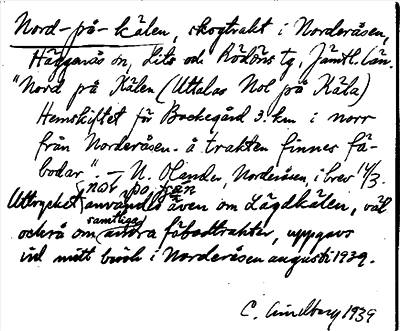 Nord-på-kälen, skogtrakt i Norderåsen,
Häggenås sn, Lits och Rödöns tg, Jämtl. län.
"Nord på Kälen (Uttalas Nol på Käla)
Hemskiftet för Backegård 3. km i norr
från Norderåsen. å trakten finnes fä-
bodar". — N. Olander, Norderåsen, i brev 14/3.
Uttrycket användes även om Lägdkälen, väl
också om samtliga andra fäbodtrakter, uppgavs
vid mitt besök i Norderåsen augusti 1939.
C. Lindberg 1939